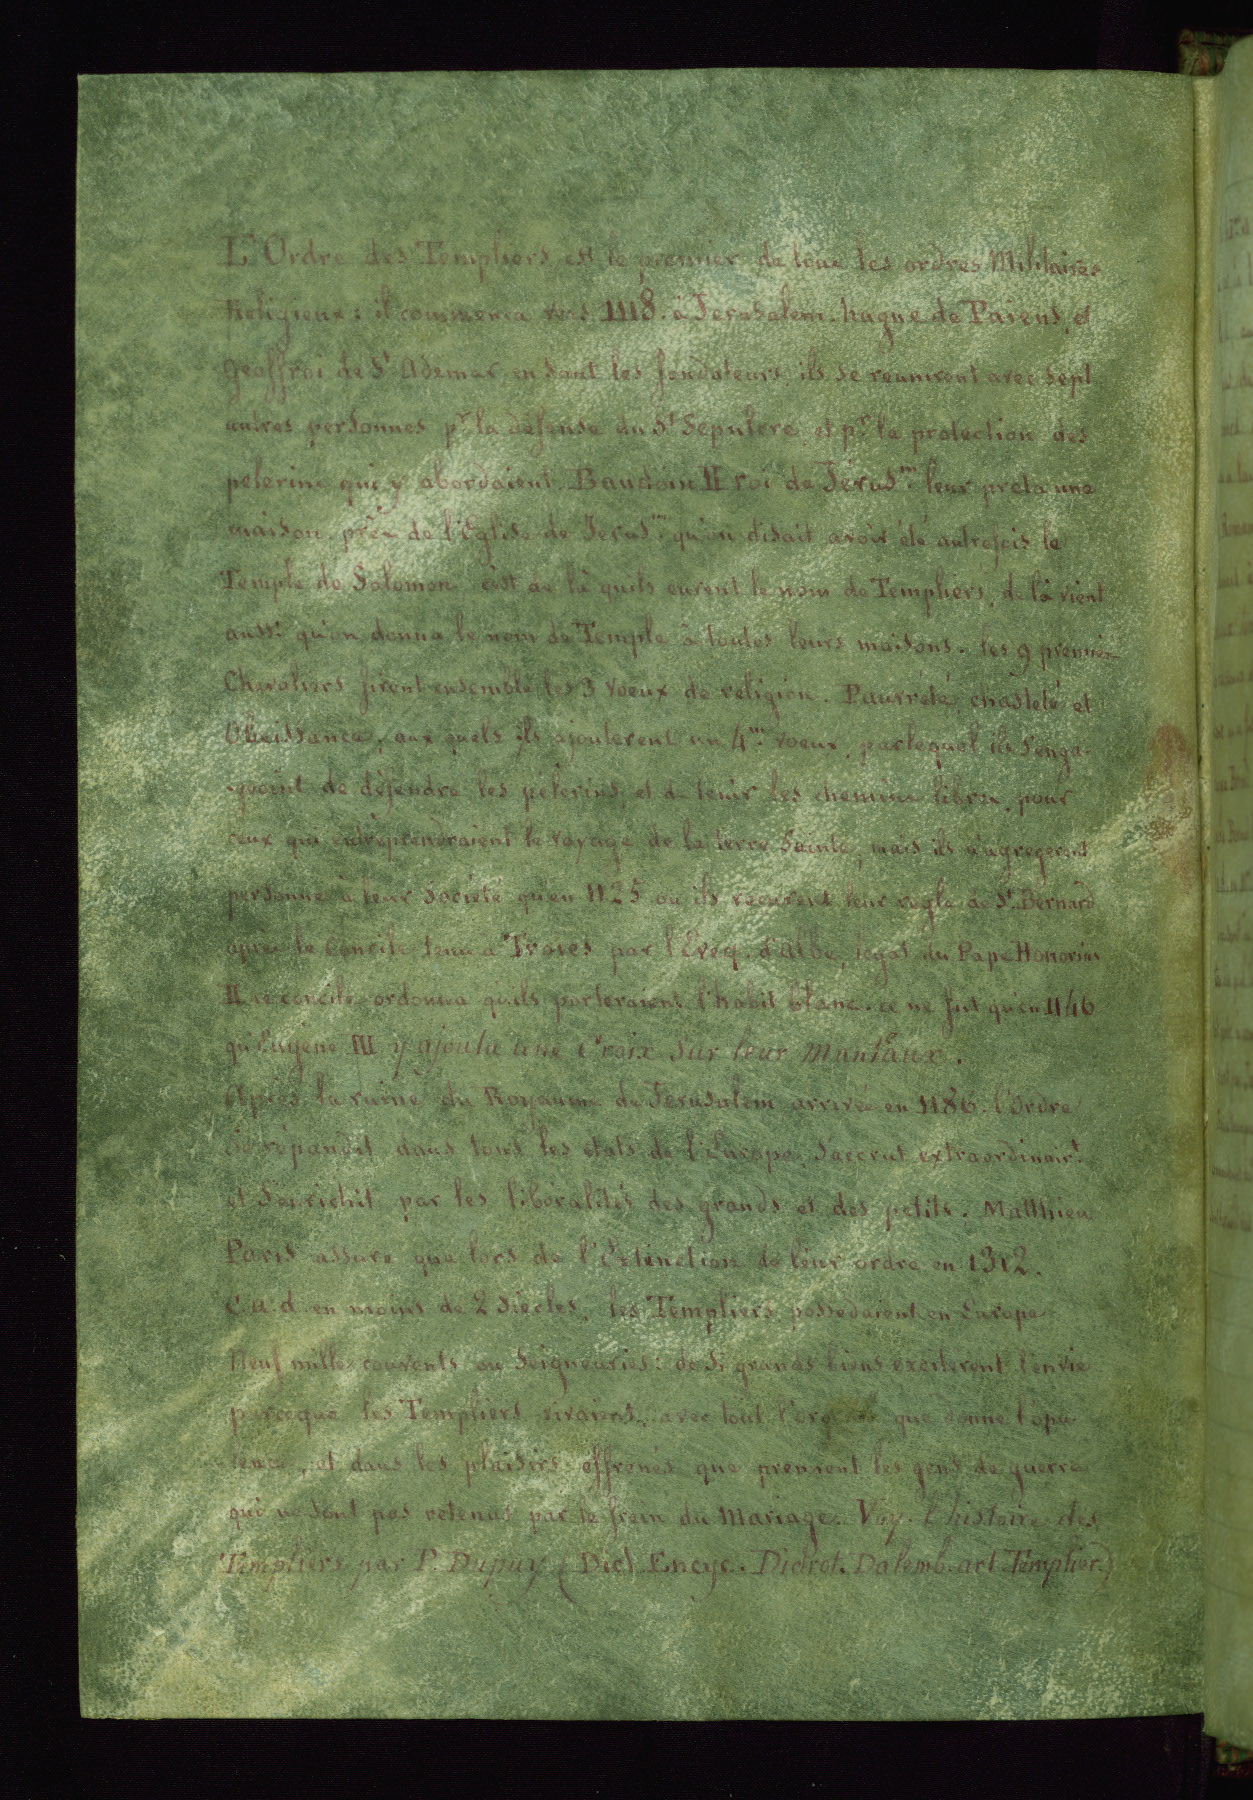 L'Ordre des Templiers est le premier de tous les ordres Militaires
Religieux : il commenca vers 1118. à Jerusalem. hugue de Paiens, et
Geoffroi de St Ademar, en sont les fondateurs, ils se reunirent avec sept
autres personnes pr la défense du St Sepulcre, et pr la protection des
pelerins qui y abordaient. Baudoin II roi de Jérusm leur preta une
maison près de l'Eglise de Jerusm qu'on disait avoir été autrefois le
Temple de Salomon, c'est de là quils eurent le nom de Templiers, de là vient
aussi qu'on donna le nom de Temple à toutes leurs maisons. les 9 premiers
Chevaliers firent ensemble les 3 voeux de religion. Pauvreté, chasteté et
Obeissance, aux quels ils ajouterent un 4me voeux, par lequel ils s'enga-
-goaint de défendre les pélerins, et de tenir les chemins libres, pour
ceux qui entreprendraient le voyage de la terre Sainte, mais ils n'agregerent
personne à leur Societé qu'en 1125 ou ils recurent leur regle de St Bernard
après le Concile tenu a Troies par l'Eveq. d'Albe, legat du Pape Honorius
II. ce concile ordonna quils porteraient l'habit blanc. ce ne fut qu'en 1146
qu'Eugene III y ajouta une Croix sur leur Manteaux.
Après la ruine du Royaume de Jerusalem arrivée en 1186. l'Ordre
Se répandit dans tous les états de l'Europe, s'accrut extraordinairt
et s'enrichit par les liberalités des grands et des petits. Matthieu
Paris assure que lors de l'Extinction de leur ordre en 1312.
c'a.d. en moins de 2 Siecles, les Templiers possedaient en Europe
Neuf mille couvents ou Seigneuries: de si grands biens exciterent l'envie
parceque les Templiers vivaient avec tout l'orgueil que donne l'opu
lence, et dans les plaisirs effrenés que prennent les gens de guerre
qui ne sont pas retenus par le frein du Mariage. Voy. l'histoire des
Templiers par P. Dupuy (Dict Encyc. Didrot. Dalemb. art Templier)